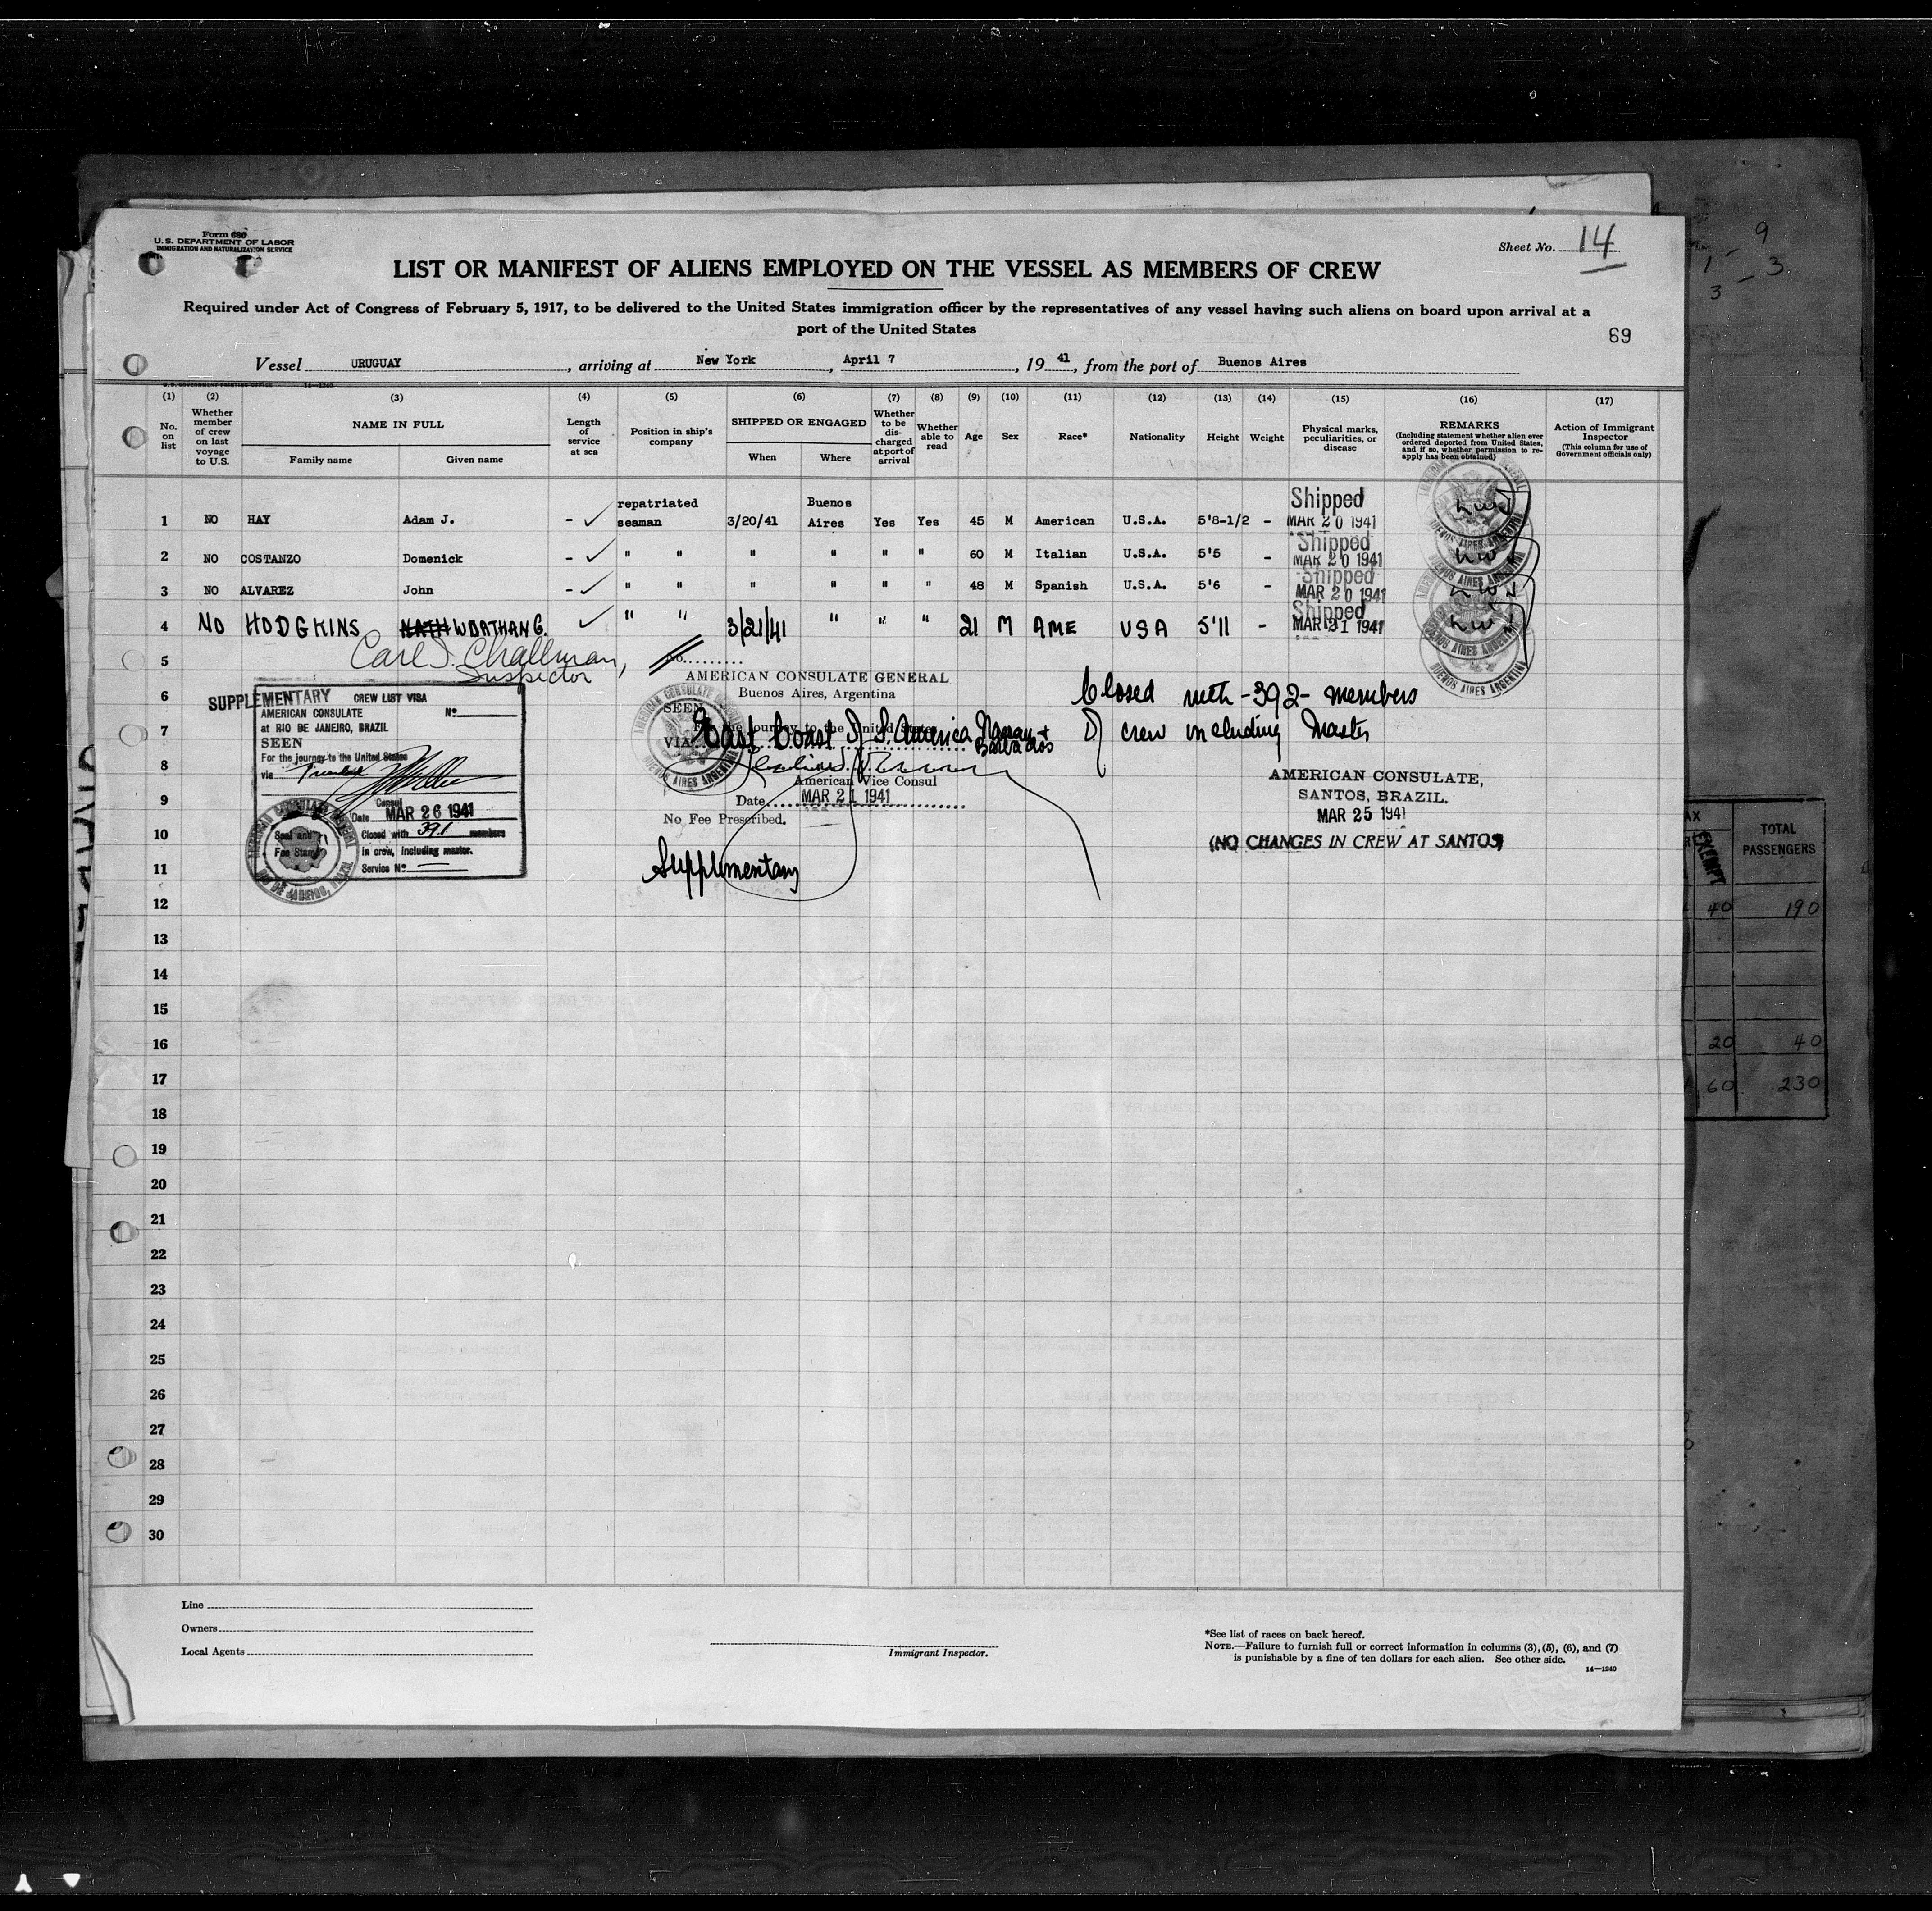 Form 680
U.S. DEPARTMENT OF LABOR
IMMIGRATION AND NATURALIZATION SERVICE
Sheet No. 14
LIST OR MANIFEST OF ALIENS EMPLOYED ON THE VESSEL AS MEMBERS OF CREW
Required under Act of Congress of February 5, 1917, to be delivered to the United States immigration officer by the representatives of any vessel having such aliens on board upon arrival at a
port of the United States
69
Vessel URUGUAY, arriving at New York, April 7, 1941, from the port of Buenos Aires
U.S. GOVERNMENT PRINTING OFFICE 14—1240
(1) (2) (3) (4) (5) (6) (7) (8) (9) (10) (11) (12) (13) (14) (15) (16) (17)
No. on list
Whether member of crew on last voyage to U.S.
NAME IN FULL
Family name Given name
Length of service at sea
Position in ship's company
SHIPPED OR ENGAGED
When Where
Whether to be discharged at port of arrival
Whether able to read
Age
Sex
Race*
Nationality
Height
Weight
Physical marks, peculiarities, or disease
REMARKS
(Including statement whether alien ever ordered deported from United States, and if so, whether permission to reapply has been obtained)
Action of Immigrant Inspector
(This column for use of Government officials only)
1 NO HAY Adam J. - ✓ repatriated seaman 3/20/41 Buenos Aires Yes Yes 45 M American U.S.A. 5'8-1/2 - Shipped MAR 20 1941
2 NO COSTANZO Domenick - ✓ " " " " " " 60 M Italian U.S.A. 5'5 - Shipped MAR 20 1941
3 NO ALVAREZ John - ✓ " " " " " " 48 M Spanish U.S.A. 5'6 - Shipped MAR 20 1941
4 NO HODGKINS WORTHAN G. ✓ " " 3/21/41 " " " 21 M AME USA 5'11 - Shipped MAR 21 1941
BUENOS AIRES ARGENTINA
5
Carl J. Challman,
Inspector
6
7
8
9
10
11
SUPPLEMENTARY CREW LIST VISA
AMERICAN CONSULATE No.
at RIO DE JANEIRO, BRAZIL
SEEN
For the journey to the United States
via Trinidad
Consul
Date MAR 26 1941
Closed with 391 members
in crew, including master.
Service No.
Seal and
Fee Stamp
No.
AMERICAN CONSULATE GENERAL
Buenos Aires, Argentina
SEEN
the journey to the United States
VIA East Coast of S. America
Barbados
American Vice Consul
Date MAR 21 1941
No Fee Prescribed.
Supplementary
Closed with -392- members
of crew including Master
AMERICAN CONSULATE,
SANTOS, BRAZIL.
MAR 25 1941
(NO CHANGES IN CREW AT SANTOS)
12
13
14
15
16
17
18
19
20
21
22
23
24
25
26
27
28
29
30
Line
Owners
Local Agents
Immigrant Inspector.
*See list of races on back hereof.
NOTE.—Failure to furnish full or correct information in columns (3), (5), (6), and (7)
is punishable by a fine of ten dollars for each alien. See other side.
14—1240
9
1 - 3
3
EXEMPT
TOTAL
PASSENGERS
40 190
20 40
60 230